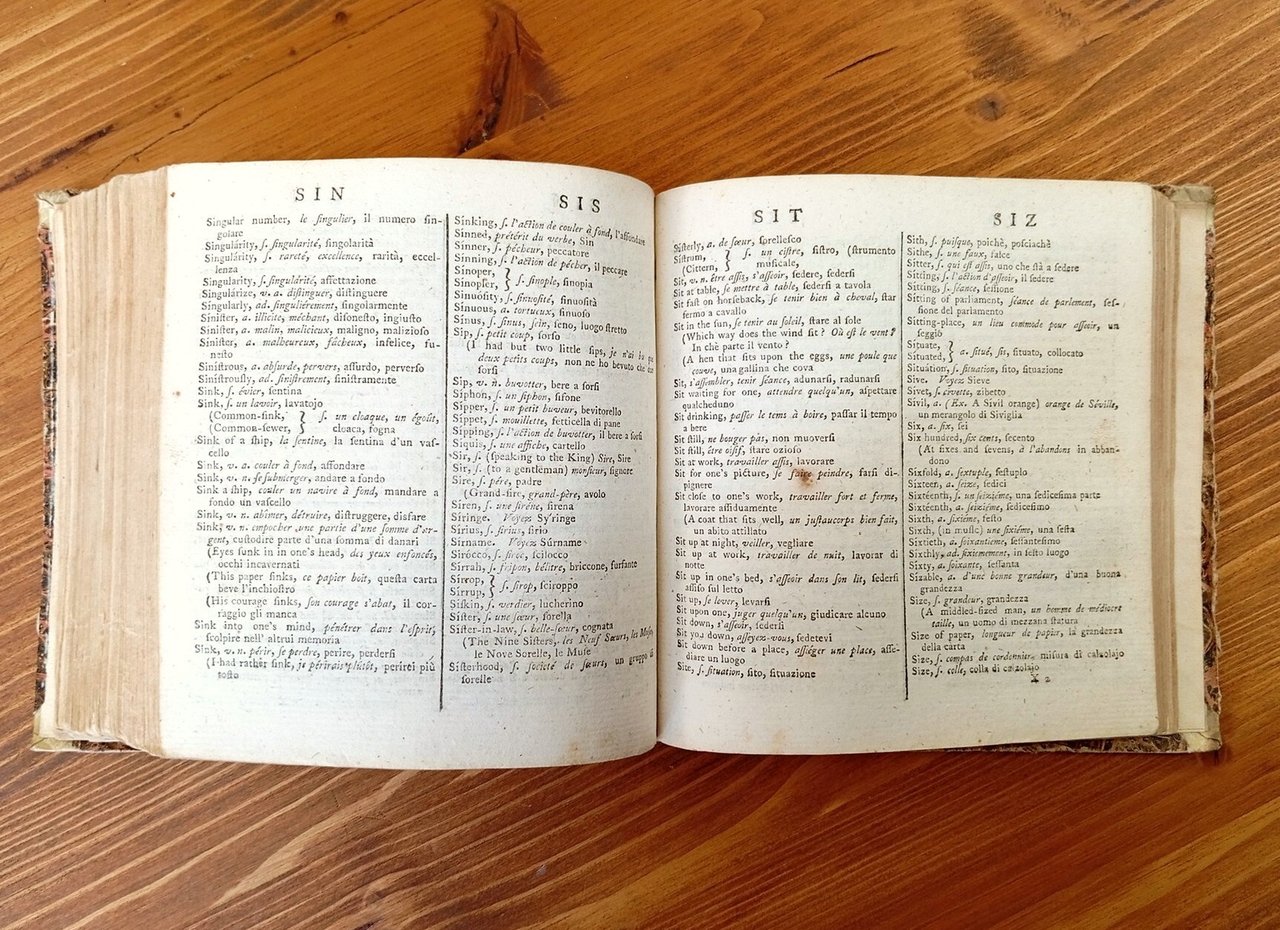 SIN
Singular number, le ſingulier, il numero ſin-
golare
Singulárity, ſ. ſingularité, ſingolarità
Singulárity, ſ. rareté, excellence, rarità, eccel-
lenza
Singulárity, ſ. ſingulárité, affettazione
Singulárize, v. a. diſtinguer, diſtinguere
Singularly, ad. ſinguliérement, ſingolarmente
Siniſter, a. illicite, méchant, diſoneſto, ingiuſto
Siniſter, a. malin, malicieux, maligno, malizioſo
Siniſter, a. malheureux, fâcheux, infelice, fu-
neſto
Siniſtrous, a. abſurde, pervers, aſſurdo, perverſo
Siniſtrouſly, ad. ſiniſtrement, ſiniſtramente
Sink, ſ. évier, ſentina
Sink, ſ. un lavoir, lavatojo
(Common-ſink, } ſ. un cloaque, un égoût,
(Common-ſewer, } cloaca, fogna
Sink of a ſhip, la ſentine, la ſentina d'un vaſ-
cello
Sink, v. a. couler à fond, affondare
Sink, v. n. ſe ſubmerger, andare a fondo
Sink a ſhip, couler un navire à fond, mandare a
fondo un vaſcello
Sink, v. n. abîmer, détruire, diſtruggere, disfare
Sink, v. n. empocher une partie d'une ſomme d'ar-
gent, cuſtodire parte d'una ſomma di danari
(Eyes ſunk in in one's head, des yeux enfoncés,
occhi incavernati
(This paper ſinks, ce papier boit, queſta carta
beve l'inchioſtro
(His courage ſinks, ſon courage s'abat, il cor-
raggio gli manca
Sink into one's mind, pénétrer dans l'eſprit,
ſcolpire nell' altrui memoria
Sink, v. n. périr, ſe perdre, perire, perderſi
(I had rather ſink, je périrais plûtôt, perirei più
toſto
SIS
Sinking, ſ. l'action de couler à fond, l'affondare
Sinned, prétérit du verbe, Sin
Sinner, ſ. pécheur, peccatore
Sinning, ſ. l'action de pécher, il peccare
Sinoper, }
Sinopſer, } ſ. ſinople, ſinopia
Sinuóſity, ſ. ſinuoſité, ſinuoſità
Sinuous, a. tortueux, ſinuoſo
Sinus, ſ. ſinus, ſein, ſeno, luogo ſtretto
Sip, ſ. petit coup, ſorſo
(I had but two little ſips, je n'ai bu que
deux petits coups, non ne ho bevuto che due
ſorſi
Sip, v. n. buvotter, bere a ſorſi
Siphon, ſ. un ſiphon, ſifone
Sipper, ſ. un petit buveur, bevitorello
Sippet, ſ. mouillette, fetticella di pane
Sipping, ſ. l'action de buvotter, il bere a ſorſi
Siquis, ſ. une affiche, cartello
Sir, ſ. (speaking to the King) Sire, Sire
Sir, ſ. (to a gentleman) monſieur, ſignore
Sire, ſ. pére, padre
(Grand-ſire, grand-père, avolo
Siren, ſ. une ſiréne, ſirena
Siringe. Voyez Sy'ringe
Sirius, ſ. ſirius, ſirio
Sirname. Voyez Súrname
Sirócco, ſ. ſiroc, ſcilocco
Sirrah, ſ. fripon, bélitre, briccone, furfante
Sirrop, }
Sirrup, } ſ. ſirop, ſciroppo
Siſkin, ſ. verdier, lucherino
Siſter, ſ. une ſœur, ſorella
Siſter-in-law, ſ. belle-ſœur, cognata
(The Nine Siſters, les Neuf Sœurs, les Muſes,
le Nove Sorelle, le Muſe
Siſterhood, ſ. ſocieté de ſœurs, un gruppo di
ſorelle
SIT
Siſterly, a. de ſœur, ſorelleſco
Siſtrum, } ſ. un ciſtre, ſiſtro, (ſtrumento
(Cittern, } muſicale,
Sit, v. n. être aſſis, s'aſſeoir, ſedere, ſederſi
Sit at table, ſe mettre à table, ſederſi a tavola
Sit faſt on horſeback, ſe tenir bien à cheval, ſtar
fermo a cavallo
Sit in the ſun, ſe tenir au ſoleil, ſtare al ſole
(Which way does the wind ſit? Où eſt le vent?
In chè parte il vento?
(A hen that ſits upon the eggs, une poule que
couve, una gallina che cova
Sit, s'aſſembler, tenir ſéance, adunarſi, radunarſi
Sit waiting for one, attendre quelqu'un, aſpettare
qualcheduno
Sit drinking, paſſer le tems à boire, paſſar il tempo
a bere
Sit ſtill, ne bouger pàs, non muoverſi
Sit ſtill, être oiſif, ſtare ozioſo
Sit at work, travailler aſſis, lavorare
Sit for one's picture, ſe faire peindre, farſi di-
pignere
Sit cloſe to one's work, travailler fort et ferme,
lavorare aſſiduamente
(A coat that ſits well, un juſtaucorps bien fait,
un abito attillato
Sit up at night, veiller, vegliare
Sit up at work, travailler de nuit, lavorar di
notte
Sit up in one's bed, s'aſſeoir dans ſon lit, ſederſi
aſſiſo ſul letto
Sit up, ſe lever, levarſi
Sit upon one, juger quelqu'un, giudicare alcuno
Sit down, s'aſſeoir, ſederſi
Sit you down, aſſeyez-vous, ſedetevi
Sit down before a place, aſſiéger une place, aſſe-
diare un luogo
Site, ſ. ſituation, ſito, ſituazione
SIZ
Sith, ſ. puiſque, poichè, poſciachè
Sithe, ſ. une faux, falce
Sitter, ſ. qui eſt aſſis, uno che ſtà a ſedere
Sitting, ſ. l'action d'aſſeoir, il ſedere
Sitting, ſ. ſéance, ſeſſione
Sitting of parliament, ſéance de parlement, ſeſ-
ſione del parlamento
Sitting-place, un lieu commode pour aſſeoir, un
ſeggio
Situate, }
Situated, } a. ſitué, ſis, ſituato, collocato
Situation, ſ. ſituation, ſito, ſituazione
Sive. Voyez Sieve
Sivet, ſ. civette, zibetto
Sivil, a. (Ex. A Sivil orange) orange de Séville,
un merangolo di Siviglia
Six, a. ſix, ſei
Six hundred, ſix cents, ſecento
(At ſixes and ſevens, à l'abandons in abban-
dono
Sixfold, a. ſextuple, ſeſtuplo
Sixteen, a. ſeize, ſedici
Sixtéenth, ſ. un ſeiziéme, una ſedicefima parte
Sixtéenth, a. ſeiziéme, ſedicefimo
Sixth, a. ſixiéme, ſeſto
Sixth, (in muſic) une ſixiéme, una ſeſta
Sixtieth, a. ſoixantieme, ſeſſanteſimo
Sixthly, ad. ſixiemement, in ſeſto luogo
Sixty, a. ſoixante, ſeſſanta
Sizable, a. d'une bonne grandeur, d'una buona
grandezza
Size, ſ. grandeur, grandezza
(A middled-ſized man, un homme de médiocre
taille, un uomo di mezzana ſtatura
Size of paper, longueur de papier, la grandezza
della carta
Size, ſ. compas de cordonnier, miſura di calzolajo
Size, ſ. colle, colla di calzolajo
X 2